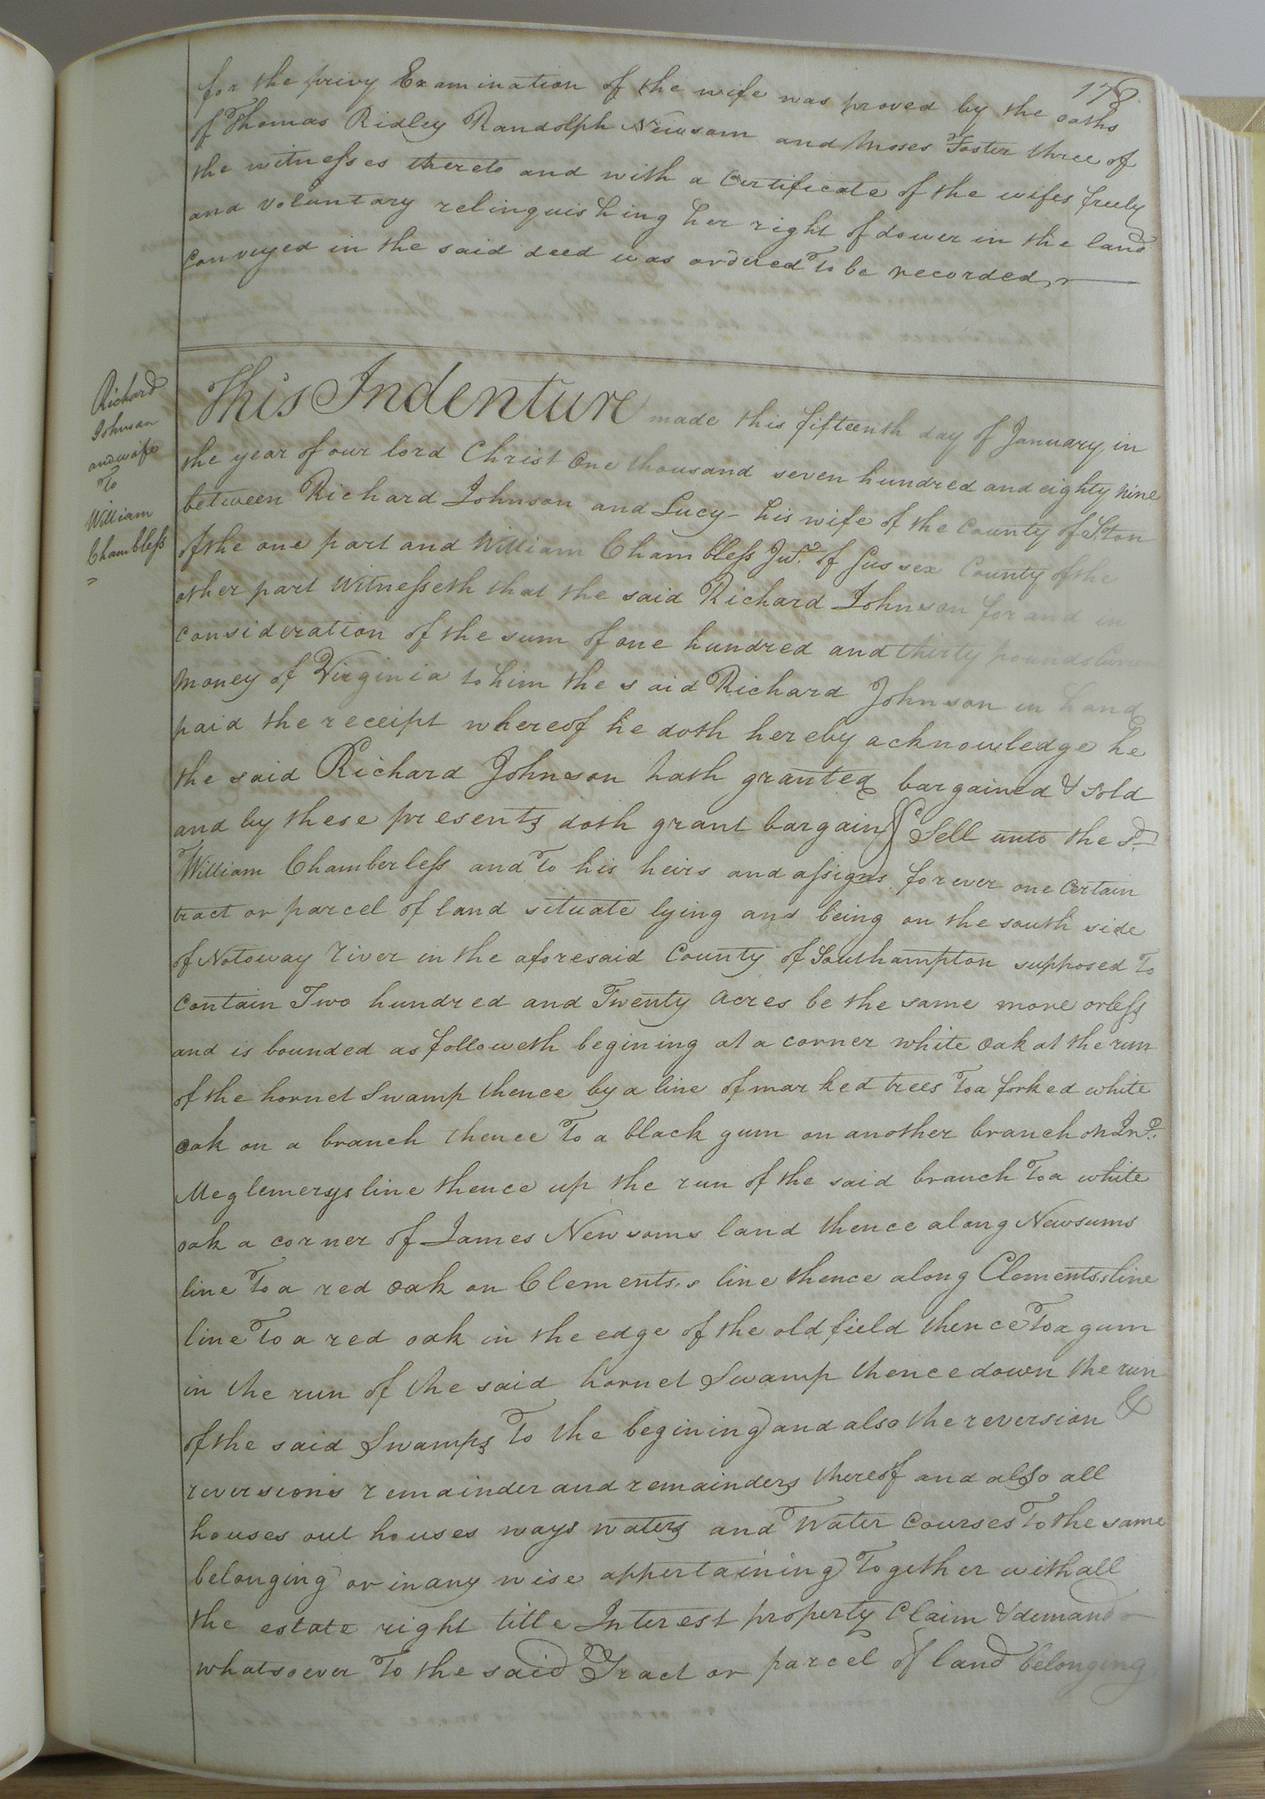 178.
for the privy Examination of the wife was proved by the oaths
of Thomas Ridley Randolph Newsom and Moses Foster three of
the witnesses thereto and with a Certificate of the wifes freely
and voluntary relinquishing her right of dower in the land
conveyed in the said deed was ordered To be recorded
Richard
Johnson
and wife
To
William
Chambless
This Indenture made this fifteenth day of January in
the year of our lord Christ One thousand seven hundred and eighty nine
between Richard Johnson and Lucy his wife of the County of S.ton
of the one part and William Chambless Jur. of Sussex County of the
other part Witnesseth that the said Richard Johnson for and in
consideration of the sum of one hundred and thirty pounds
money of Virginia to him the said Richard Johnson in hand
paid the receipt whereof he doth hereby acknowledge he
the said Richard Johnson hath granted bargained & sold
and by these presents doth grant bargain & Sell unto the sd
William Chamberless and To his heirs and assigns forever one Certain
tract or parcel of land situate lying and being on the south side
of Notoway river in the aforesaid County of Southampton supposed To
contain Two hundred and Twenty acres be the same more or less
and is bounded as followeth begining at a corner white oak at the run
of the hornet Swamp thence by a line of marked trees To a forked white
oak on a branch thence To a black gum on another branch on Jno.
Meglemerys line thence up the run of the said branch To a white
oak a corner of James Newsoms land thence along Newsums
line To a red oak on Clements,s line thence along Clements,s line
line To a red oak in the edge of the old field thence To a gum
in the run of the said hornet Swamp thence down the run
of the said Swamps To the begining and also the reversion &
reversions remainder and remainders thereof and also all
houses out houses ways waters and Water Courses To the same
belonging or in any wise appertaining Together with all
the estate right title Interest property Claim & demand
whatsoever To the said Tract or parcel of land belonging